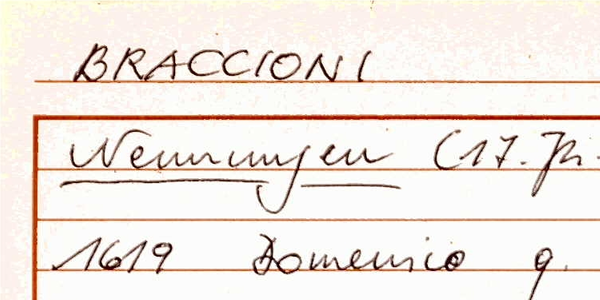 BRACCIONI
Nennungen (17. Jh.
1619 Domenico q.